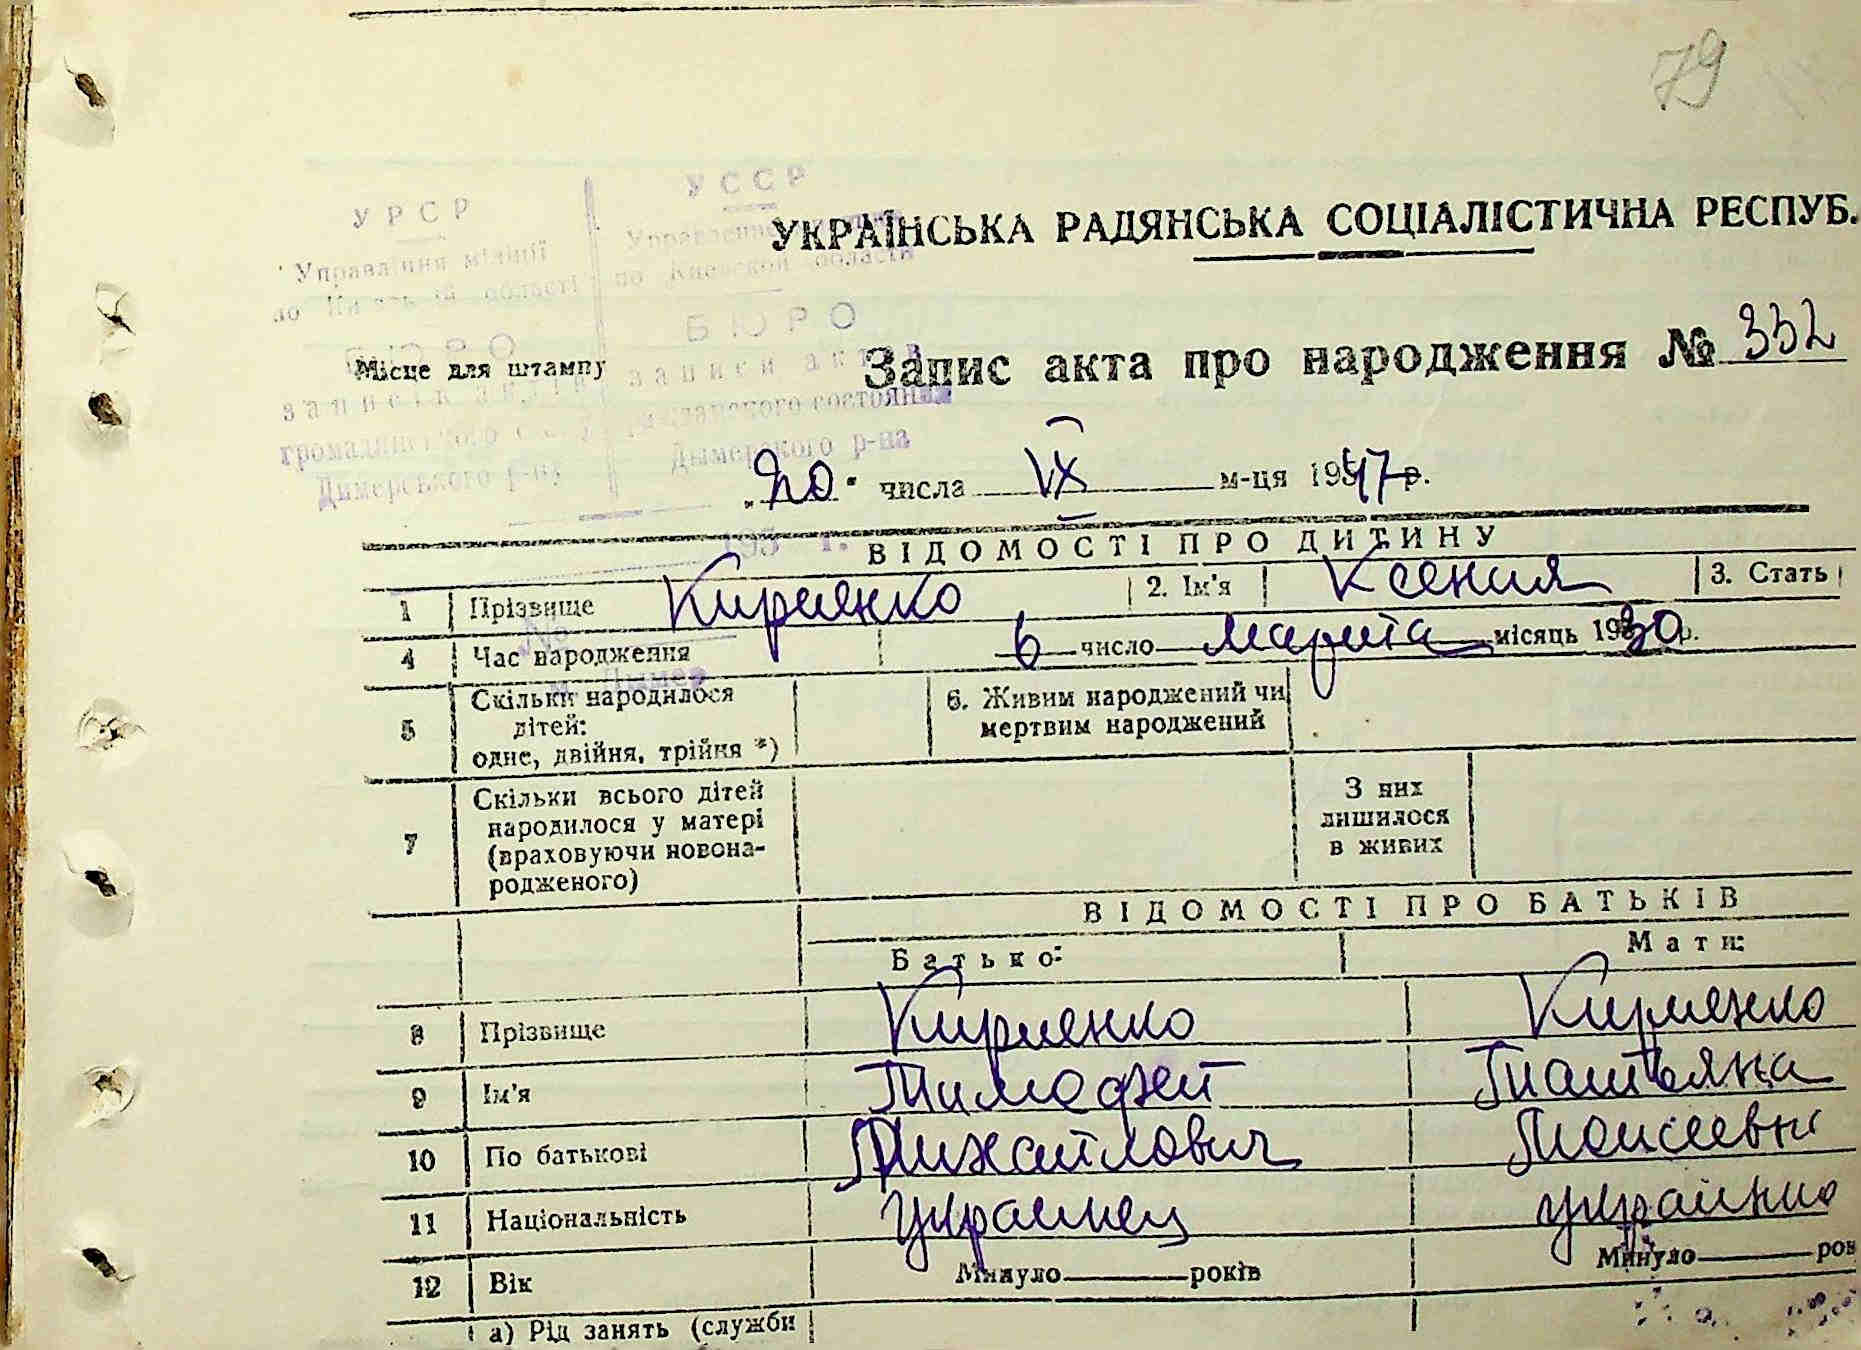 79
УРСР
УССР
Управління міліції
Управление
УКРАЇНСЬКА РАДЯНСЬКА СОЦІАЛІСТИЧНА РЕСПУБ.
по області
по Киевской области
БЮРО
БЮРО
Місце для штампу
Запис акта про народження № 332
записи актів
записи актов
громадянського
гражданского состояния
Димерського р-ну
Дымерского р-на
„20" числа IX м-ця 1947 р.
195 г.
ВІДОМОСТІ ПРО ДИТИНУ
1 Прізвище Кириенко 2. Ім'я Ксения 3. Стать
№
4 Час народження 6 число марта місяць 1930 р.
м. Дымер
5 Скільки народилося дітей: одне, двійня, трійня *) 6. Живим народжений чи мертвим народжений
7 Скільки всього дітей народилося у матері (враховуючи новона-родженого) З них лишилося в живих
ВІДОМОСТІ ПРО БАТЬКІВ
Батько: Мати:
8 Прізвище Кириенко Кириенко
9 Ім'я Тимофей Татьяна
10 По батькові Михайлович Моисеевна
11 Національність украинец украинка
12 Вік Минуло років Минуло рок
а) Рід занять (служби